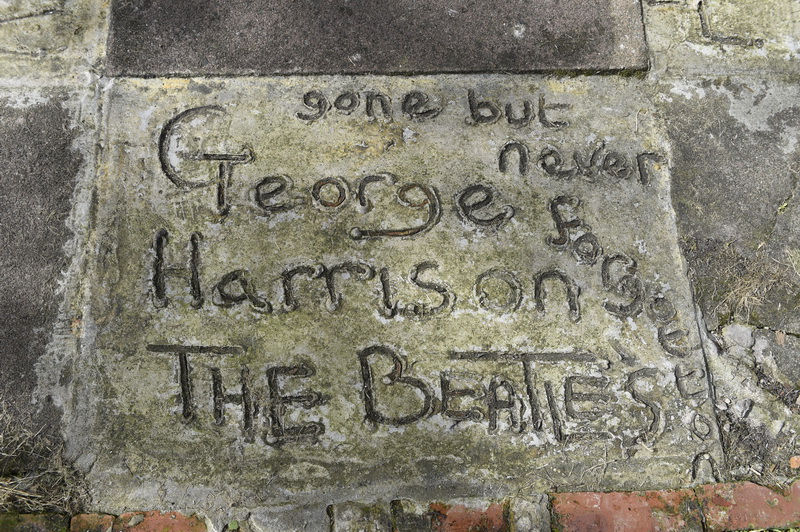 gone but
never
forgotton
George
Harrison
THE BEATLES